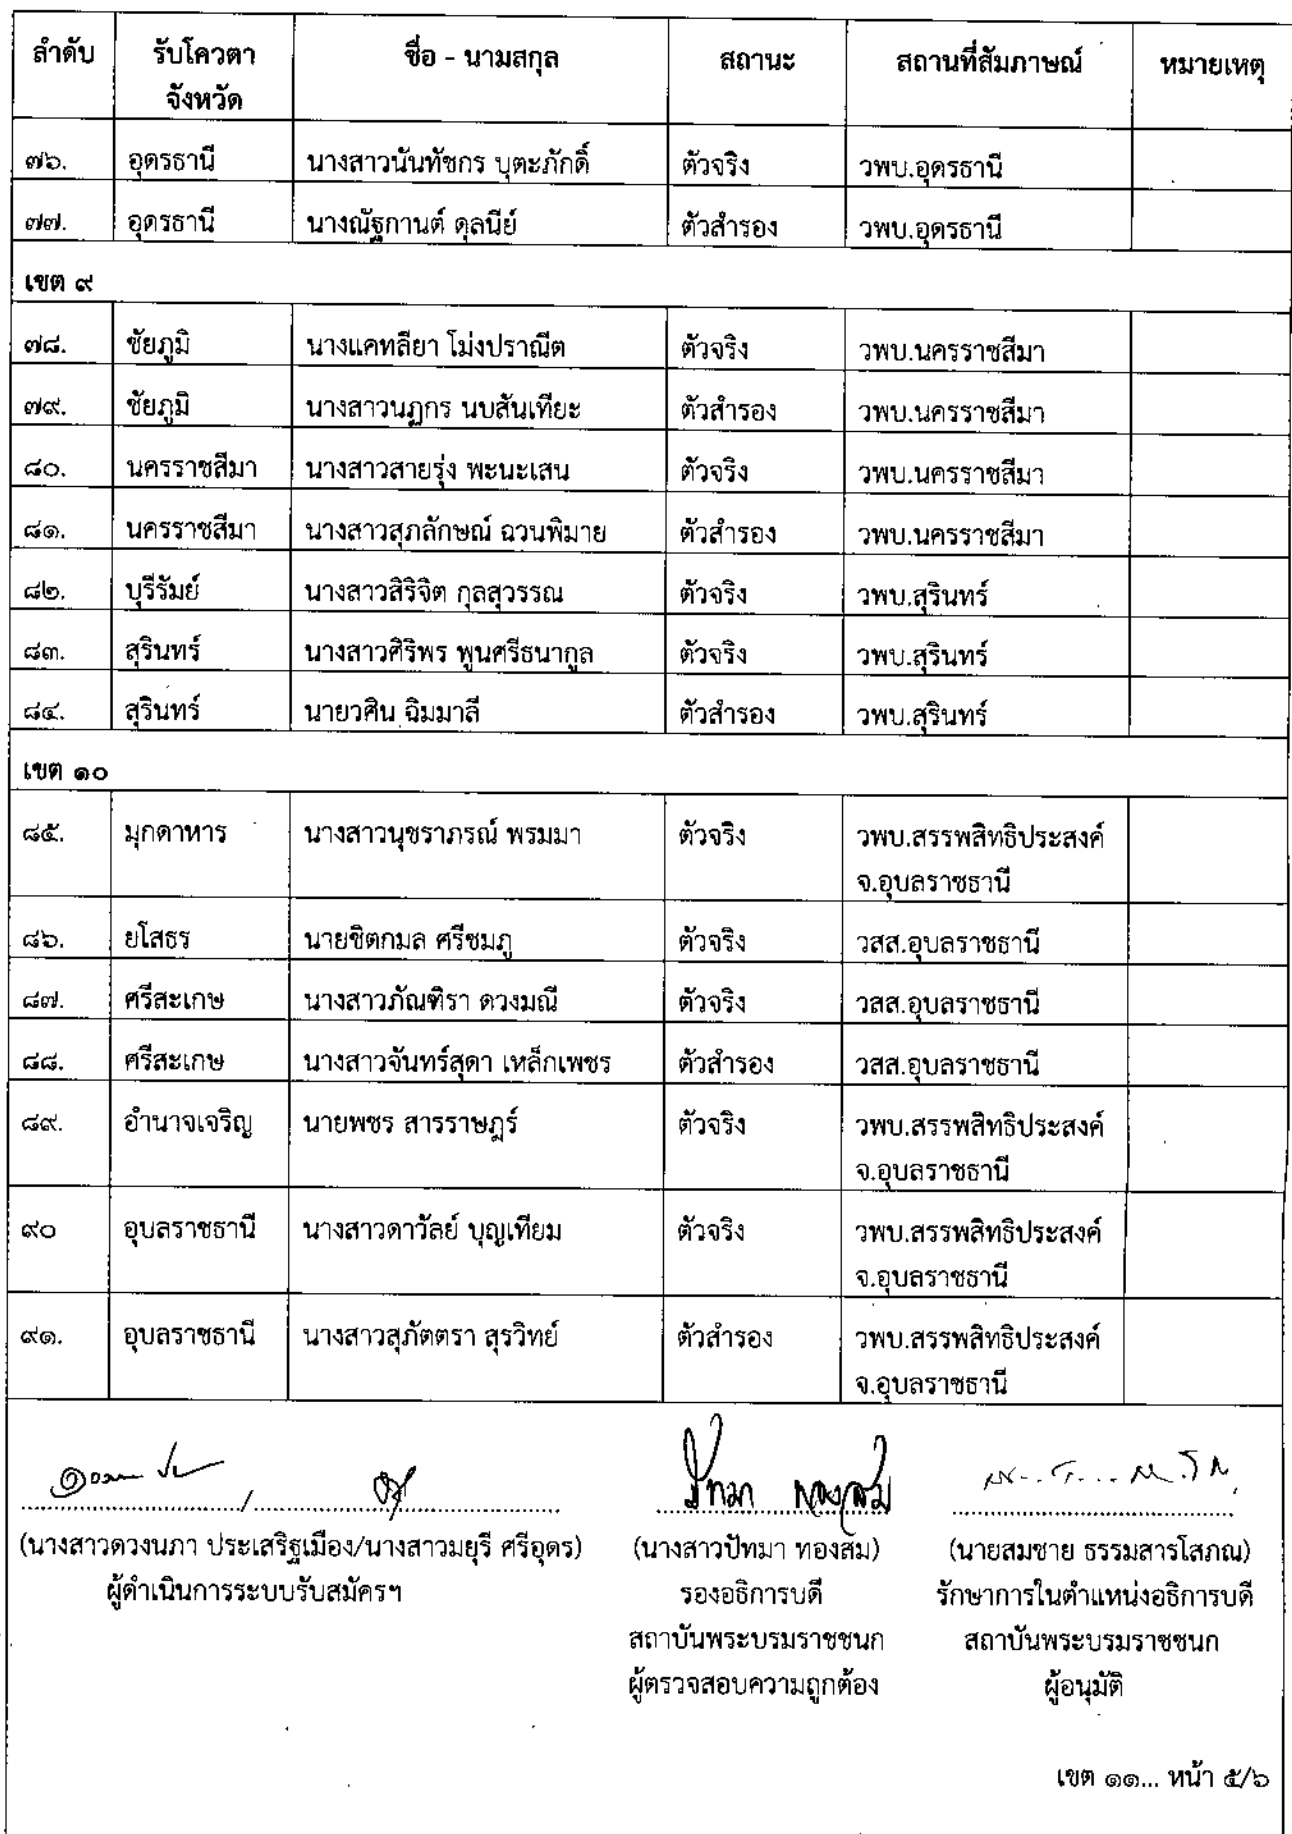 ลำดับ รับโควตา ชื่อ - นามสกุล สถานะ สถานที่สัมภาษณ์ หมายเหตุ
จังหวัด
๗๖. อุดรธานี นางสาวนันทัชกร บุตะภักดิ์ ตัวจริง วพบ.อุดรธานี
๗๗. อุดรธานี นางณัฐกานต์ ดุลนีย์ ตัวสำรอง วพบ.อุดรธานี
เขต ๙
๗๘. ชัยภูมิ นางแคทลียา โม่งปราณีต ตัวจริง วพบ.นครราชสีมา
๗๙. ชัยภูมิ นางสาวนฏกร นบสันเทียะ ตัวสำรอง วพบ.นครราชสีมา
๘๐. นครราชสีมา นางสาวสายรุ่ง พะนะเสน ตัวจริง วพบ.นครราชสีมา
๘๑. นครราชสีมา นางสาวสุภลักษณ์ ฉวนพิมาย ตัวสำรอง วพบ.นครราชสีมา
๘๒. บุรีรัมย์ นางสาวสิริจิต กุลสุวรรณ ตัวจริง วพบ.สุรินทร์
๘๓. สุรินทร์ นางสาวศิริพร พูนศรีธนากูล ตัวจริง วพบ.สุรินทร์
๘๔. สุรินทร์ นายวศิน ฉิมมาลี ตัวสำรอง วพบ.สุรินทร์
เขต ๑๐
๘๕. มุกดาหาร นางสาวนุชราภรณ์ พรมมา ตัวจริง วพบ.สรรพสิทธิประสงค์
จ.อุบลราชธานี
๘๖. ยโสธร นายชิตกมล ศรีชมภู ตัวจริง วสส.อุบลราชธานี
๘๗. ศรีสะเกษ นางสาวภัณฑิรา ดวงมณี ตัวจริง วสส.อุบลราชธานี
๘๘. ศรีสะเกษ นางสาวจันทร์สุดา เหล็กเพชร ตัวสำรอง วสส.อุบลราชธานี
๘๙. อำนาจเจริญ นายพชร สารราษฎร์ ตัวจริง วพบ.สรรพสิทธิประสงค์
จ.อุบลราชธานี
๙๐ อุบลราชธานี นางสาวดาวัลย์ บุญเทียม ตัวจริง วพบ.สรรพสิทธิประสงค์
จ.อุบลราชธานี
๙๑. อุบลราชธานี นางสาวสุภัตตรา สุรวิทย์ ตัวสำรอง วพบ.สรรพสิทธิประสงค์
จ.อุบลราชธานี
ปัทมา ทองสม
(นางสาวดวงนภา ประเสริฐเมือง/นางสาวมยุรี ศรีอุดร) (นางสาวปัทมา ทองสม) (นายสมชาย ธรรมสารโสภณ)
ผู้ดำเนินการระบบรับสมัครฯ รองอธิการบดี รักษาการในตำแหน่งอธิการบดี
สถาบันพระบรมราชชนก สถาบันพระบรมราชชนก
ผู้ตรวจสอบความถูกต้อง ผู้อนุมัติ
เขต ๑๑... หน้า ๕/๖